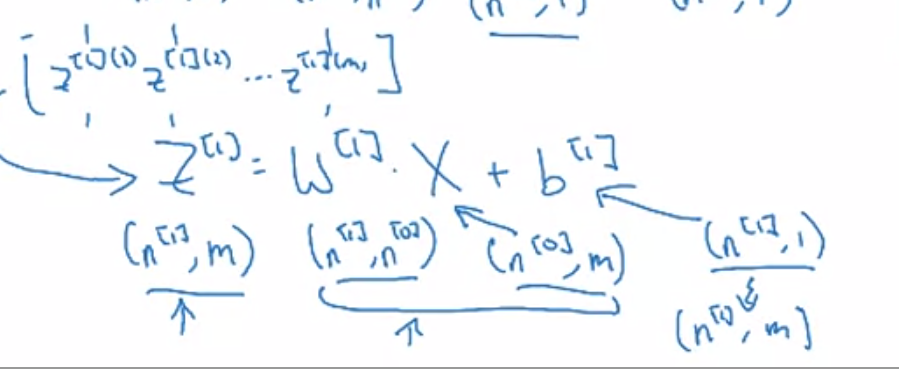 [z^{[1](1)} z^{[1](2)} ... z^{[1](m)}]
Z^{[1]} = W^{[1]} . X + b^{[1]}
(n^{[1]}, m) (n^{[1]}, n^{[0]}) (n^{[0]}, m) (n^{[1]}, 1)
(n^{[1]}, m)